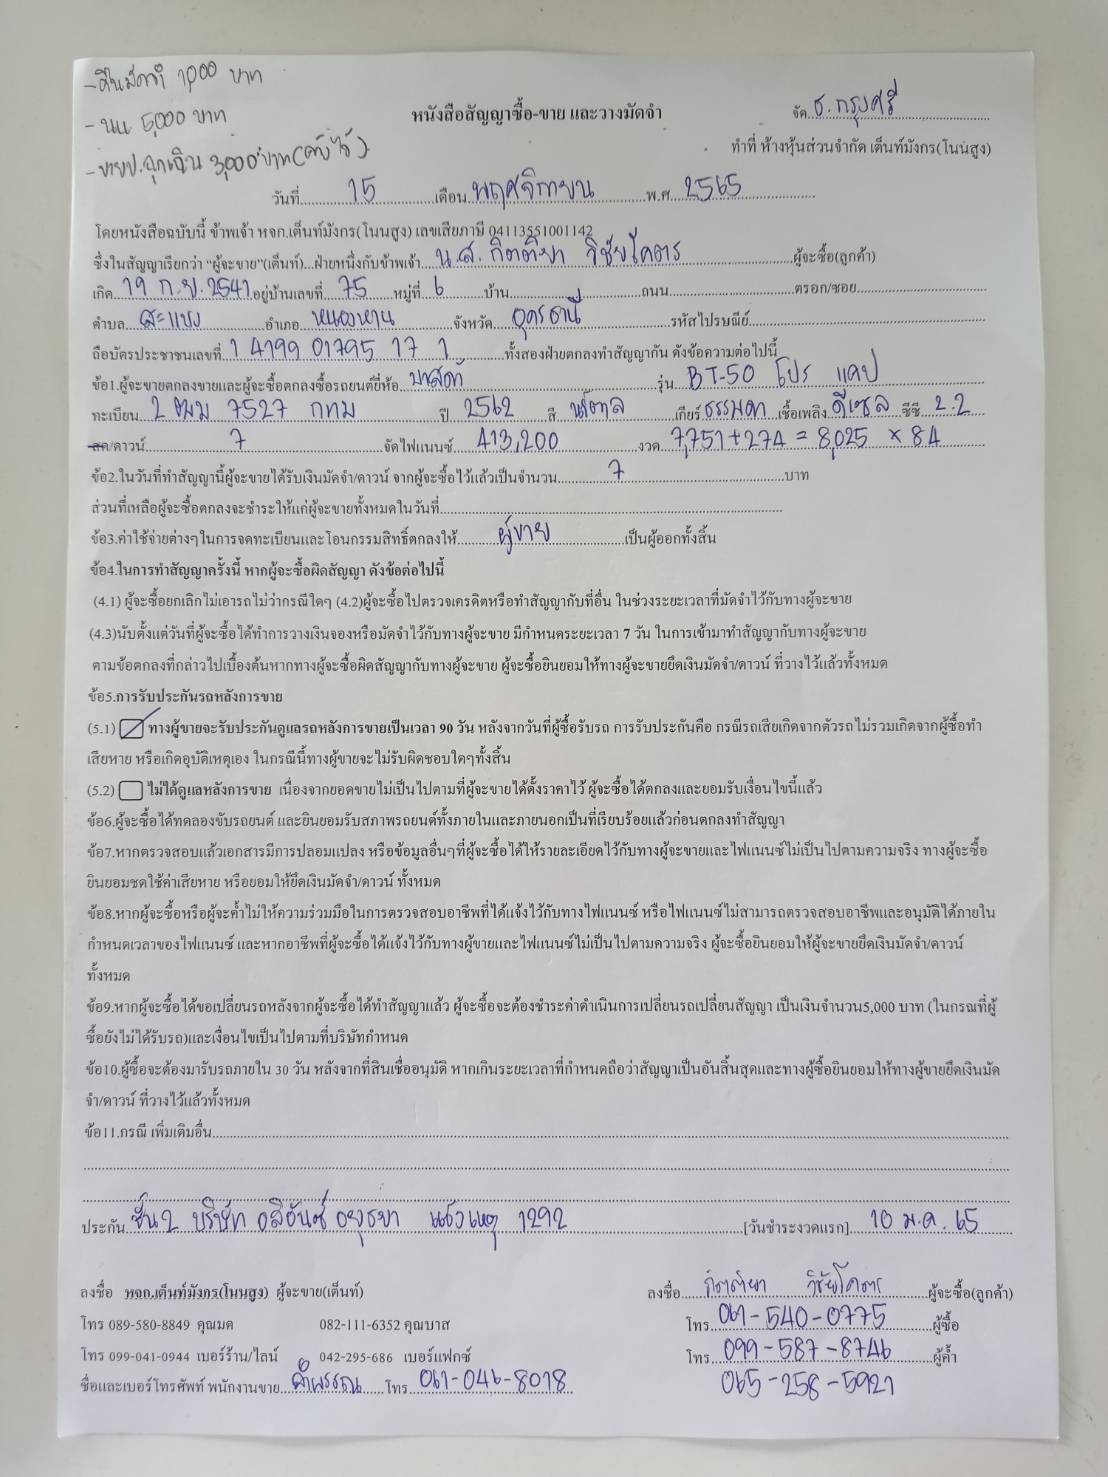 -คืนมัดจำ 1,000 บาท
- นน 5,000 บาท
- ฉุกเฉิน 3,000 บาท
จัด ธ.กรุงศรี
หนังสือสัญญาซื้อ-ขาย และวางมัดจำ
ทำที่ ห้างหุ้นส่วนจำกัด เต็นท์มังกร(โนนสูง)
วันที่ 15 เดือน พฤศจิกายน พ.ศ. 2565
โดยหนังสือฉบับนี้ ข้าพเจ้า หจก.เต็นท์มังกร(โนนสูง) เลขเสียภาษี 04113551001142
ซึ่งในสัญญาเรียกว่า "ผู้จะขาย"(เต็นท์)...ฝ่ายหนึ่งกับข้าพเจ้า น.ส. กิตติยา วิชัยโคตร ผู้จะซื้อ(ลูกค้า)
เกิด 19 ก.ย. 2541 อยู่บ้านเลขที่ 75 หมู่ที่ 6 บ้าน ถนน ตรอก/ซอย
ตำบล สะแบง อำเภอ หนองหาน จังหวัด อุดรธานี รหัสไปรษณีย์
ถือบัตรประชาชนเลขที่ 1 4199 01795 17 1 ทั้งสองฝ่ายตกลงทำสัญญากัน ดังข้อความต่อไปนี้
ข้อ1.ผู้จะขายตกลงขายและผู้จะซื้อตกลงซื้อรถยนต์ยี่ห้อ มาสด้า รุ่น BT-50 โปร แคป
ทะเบียน 2 ฒม 7527 กทม ปี 2562 สี เกียร์ ธรรมดา เชื้อเพลิง ดีเซล ซีซี 2.2
สด/ดาวน์ 7 จัดไฟแนนซ์ 413,200 งวด 7,751+274 = 8,025 × 84
ข้อ2.ในวันที่ทำสัญญานี้ผู้จะขายได้รับเงินมัดจำ/ดาวน์ จากผู้จะซื้อไว้แล้วเป็นจำนวน 7 บาท
ส่วนที่เหลือผู้จะซื้อตกลงจะชำระให้แก่ผู้จะขายทั้งหมดในวันที่
ข้อ3.ค่าใช้จ่ายต่างๆในการจดทะเบียนและโอนกรรมสิทธิ์ตกลงให้ ผู้ขาย เป็นผู้ออกทั้งสิ้น
ข้อ4.ในการทำสัญญาครั้งนี้ หากผู้จะซื้อผิดสัญญา ดังข้อต่อไปนี้
(4.1) ผู้จะซื้อยกเลิกไม่เอารถไม่ว่ากรณีใดๆ (4.2)ผู้จะซื้อไปตรวจเครดิตหรือทำสัญญากับที่อื่น ในช่วงระยะเวลาที่มัดจำไว้กับทางผู้จะขาย
(4.3)นับตั้งแต่วันที่ผู้จะซื้อได้ทำการวางเงินจองหรือมัดจำไว้กับทางผู้จะขาย มีกำหนดระยะเวลา 7 วัน ในการเข้ามาทำสัญญากับทางผู้จะขาย
ตามข้อตกลงที่กล่าวไปเบื้องต้นหากทางผู้จะซื้อผิดสัญญากับทางผู้จะขาย ผู้จะซื้อยินยอมให้ทางผู้จะขายยึดเงินมัดจำ/ดาวน์ ที่วางไว้แล้วทั้งหมด
ข้อ5.การรับประกันรถหลังการขาย
(5.1) ทางผู้ขายจะรับประกันดูแลรถหลังการขายเป็นเวลา 90 วัน หลังจากวันที่ผู้ซื้อรับรถ การรับประกันคือ กรณีรถเสียเกิดจากตัวรถไม่รวมเกิดจากผู้ซื้อทำ
เสียหาย หรือเกิดอุบัติเหตุเอง ในกรณีนี้ทางผู้ขายจะไม่รับผิดชอบใดๆทั้งสิ้น
(5.2) ไม่ได้ดูแลหลังการขาย เนื่องจากยอดขายไม่เป็นไปตามที่ผู้จะขายได้ตั้งราคาไว้ ผู้จะซื้อได้ตกลงและยอมรับเงื่อนไขนี้แล้ว
ข้อ6.ผู้จะซื้อได้ทดลองขับรถยนต์ และยินยอมรับสภาพรถยนต์ทั้งภายในและภายนอกเป็นที่เรียบร้อยแล้วก่อนตกลงทำสัญญา
ข้อ7.หากตรวจสอบแล้วเอกสารมีการปลอมแปลง หรือข้อมูลอื่นๆที่ผู้จะซื้อได้ให้รายละเอียดไว้กับทางผู้จะขายและไฟแนนซ์ไม่เป็นไปตามความจริง ทางผู้จะซื้อ
ยินยอมชดใช้ค่าเสียหาย หรือยอมให้ยึดเงินมัดจำ/ดาวน์ ทั้งหมด
ข้อ8.หากผู้จะซื้อหรือผู้จะค้ำไม่ให้ความร่วมมือในการตรวจสอบอาชีพที่ได้แจ้งไว้กับทางไฟแนนซ์ หรือไฟแนนซ์ไม่สามารถตรวจสอบอาชีพและอนุมัติได้ภายใน
กำหนดเวลาของไฟแนนซ์ และหากอาชีพที่ผู้จะซื้อได้แจ้งไว้กับทางผู้ขายและไฟแนนซ์ไม่เป็นไปตามความจริง ผู้จะซื้อยินยอมให้ผู้จะขายยึดเงินมัดจำ/ดาวน์
ทั้งหมด
ข้อ9.หากผู้จะซื้อได้ขอเปลี่ยนรถหลังจากผู้จะซื้อได้ทำสัญญาแล้ว ผู้จะซื้อจะต้องชำระค่าดำเนินการเปลี่ยนรถเปลี่ยนสัญญา เป็นเงินจำนวน5,000 บาท (ในกรณที่ผู้
ซื้อยังไม่ได้รับรถ)และเงื่อนไขเป็นไปตามที่บริษัทกำหนด
ข้อ10.ผู้ซื้อจะต้องมารับรถภายใน 30 วัน หลังจากที่สินเชื่ออนุมัติ หากเกินระยะเวลาที่กำหนดถือว่าสัญญาเป็นอันสิ้นสุดและทางผู้ซื้อยินยอมให้ทางผู้ขายยึดเงินมัด
จำ/ดาวน์ ที่วางไว้แล้วทั้งหมด
ข้อ11.กรณี เพิ่มเติมอื่น
ประกัน ชั้น2 บริษัท อลิอันซ์ อยุธยา แจ้งเหตุ 1292 [วันชำระงวดแรก] 10 ม.ค. 65
ลงชื่อ หจก.เต็นท์มังกร(โนนสูง) ผู้จะขาย(เต็นท์) ลงชื่อ กิตติยา วิชัยโคตร ผู้จะซื้อ(ลูกค้า)
โทร 089-580-8849 คุณมด 082-111-6352 คุณบาส โทร. 061-540-0775 ผู้ซื้อ
โทร 099-041-0944 เบอร์ร้าน/ไลน์ 042-295-686 เบอร์แฟกซ์ โทร. 099-587-8746 ผู้ค้ำ
ชื่อและเบอร์โทรศัพท์ พนักงานขาย โทร 061-046-8018 065-258-5921